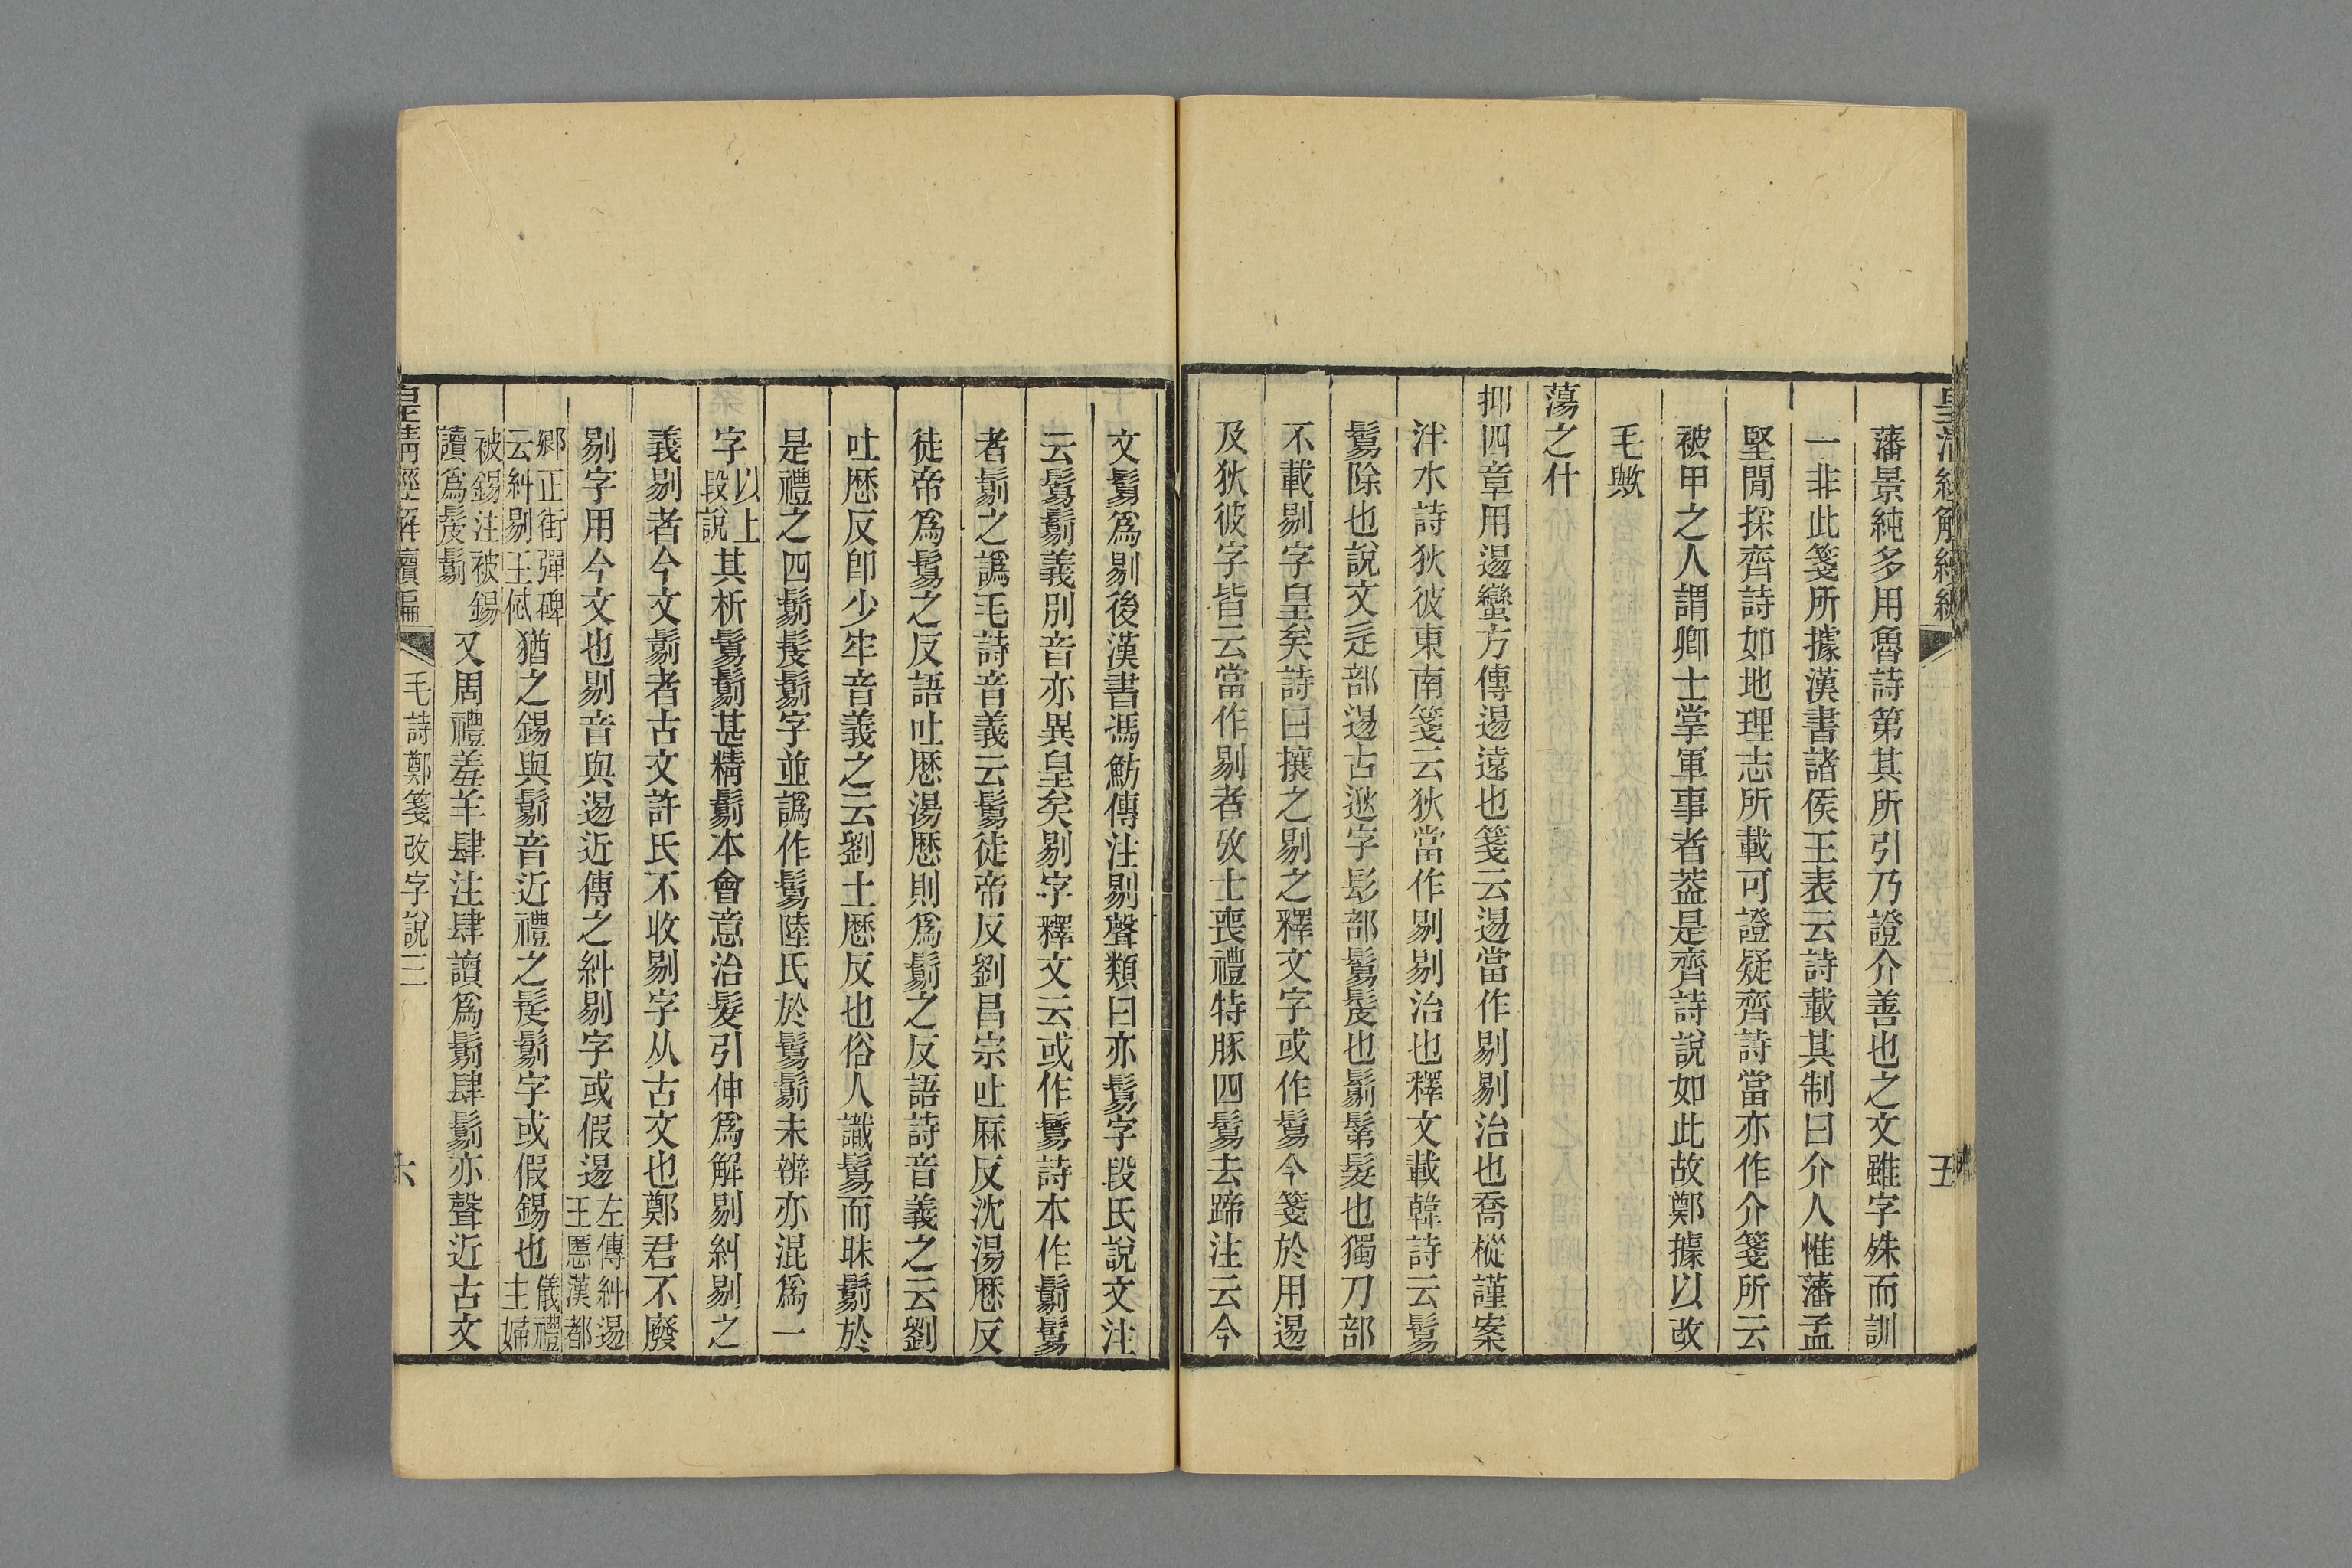 藩景純多用魯詩第其所引乃證介善也之文雖字殊而訓
一非此箋所據漢書諸侯王表云詩載其制曰介人惟藩孟
堅閒採齊詩如地理志所載可證疑齊詩當亦作介箋所云
被甲之人謂卿士掌軍事者葢是齊詩說如此故鄭據以改
毛歟
蕩之什
抑四章用逷蠻方傳逷遠也箋云逷當作剔剔治也喬樅謹案
泮水詩狄彼東南箋云狄當作剔剔治也釋文載韓詩云鬄
鬄除也說文辵部逷古逖字髟部鬄髲也鬀鬄髮也獨刀部
不載剔字皇矣詩曰攘之剔之釋文字或作鬄今箋於用逷
及狄彼字皆云當作剔者攷士喪禮特豚四鬄去蹄注云今
文鬄爲剔後漢書馮魴傳注剔聲類曰亦鬄字段氏說文注
云鬄鬀義別音亦異皇矣剔字釋文云或作鬄詩本作鬀鬄
者鬀之譌毛詩音義云鬄徒帝反劉昌宗吐麻反沈湯厯反
徒帝爲鬄之反語吐厯湯厯則爲鬀之反語詩音義之云劉
吐厯反卽少牢音義之云劉土厯反也俗人譏鬄而昧鬀於
是禮之四鬀髲鬀字並譌作鬄陸氏於鬄鬀未辨亦混爲一
字以上段說其析鬄鬀甚精鬀本會意治髮引伸爲解剔糾剔之
義剔者今文鬀者古文許氏不收剔字从古文也鄭君不廢
剔字用今文也剔音與逷近傳之糾剔字或假逷左傳糾逷王慝漢都
鄉正街彈碑云糾剔王慝猶之錫與鬀音近禮之髲鬀字或假錫也儀禮主婦
被錫注被錫讀爲髲鬀又周禮羞羊肆注肆讀爲鬀肆鬀亦聲近古文
皇清經解續編
毛詩鄭箋改字說三
六